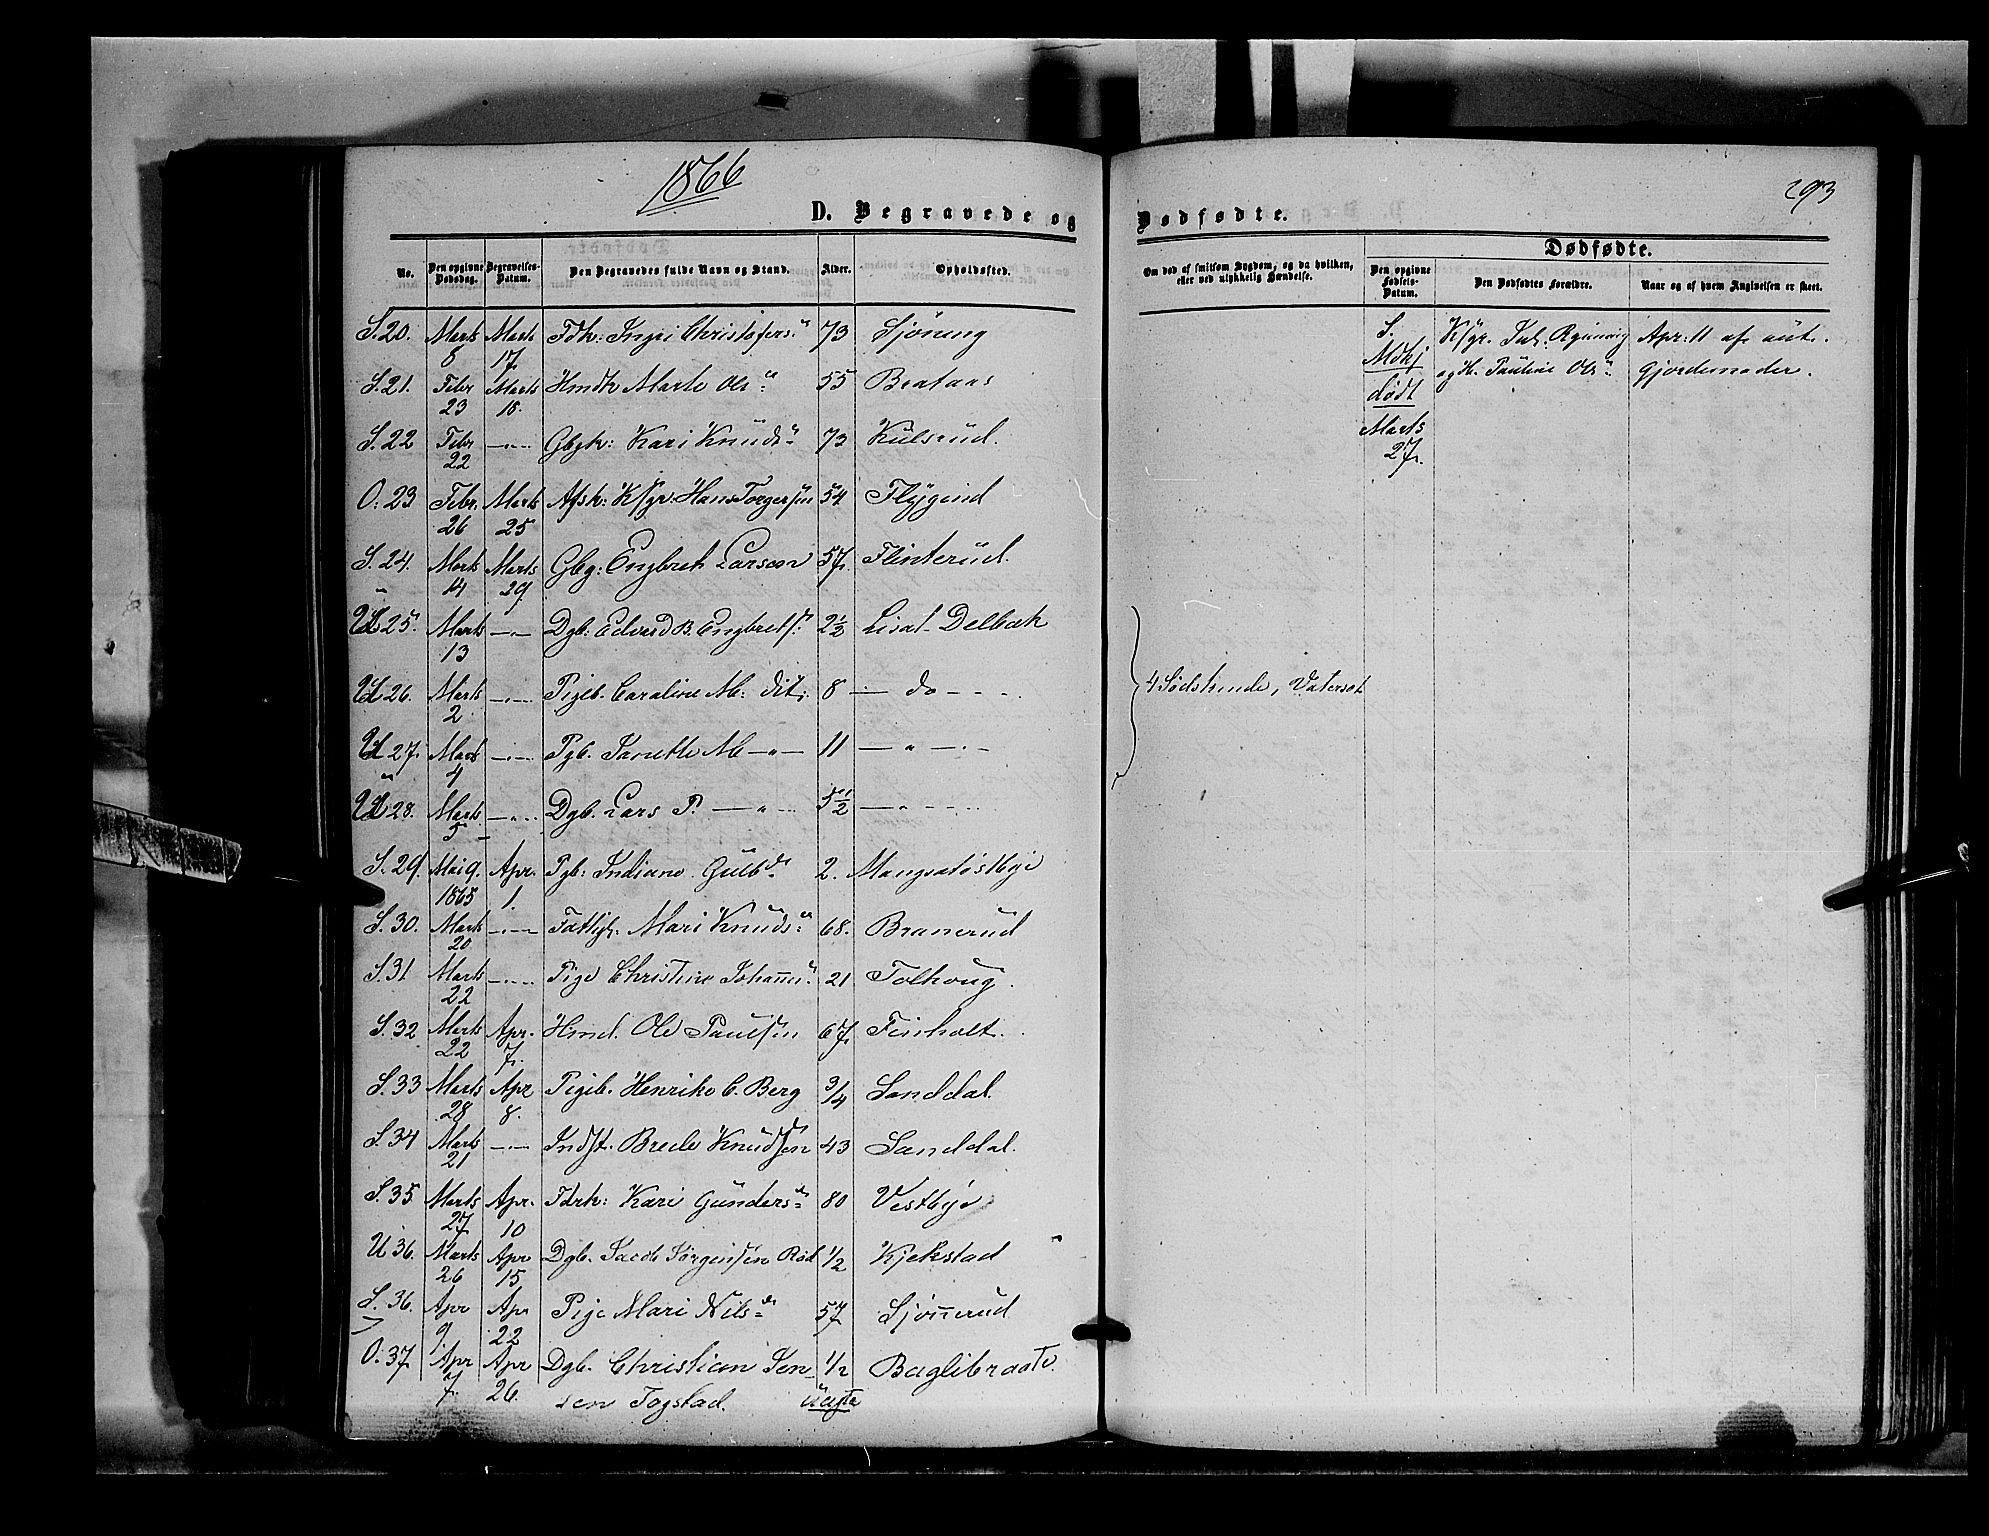 1866
293
D. Begravede og Dødfødte.
Dødfødte.
No. Den opgivne Dødsdag. Begravelses-Datum. Den Begravedes fulde Navn og Stand. Alder. Opholdssted. Om død af smitsom Sygdom, og da hvilken, eller ved ulykkelig Hændelse. Den opgivne Fødsels-Datum. Den Dødfødtes Forældre. Naar og af hvem Angivelsen er skeet.
S. 20. Marts 8 Marts 17. Fdk: Ingri Christofersd 73 Sjöneng
S. 21. Febr 23 Marts 18. Hmdk Marte Olsd 55 Brataas
S. 22 Febr 22 —"— Gbgk: Kari Knudsd 73 Kulsrud.
O: 23 Febr. 26 Marts 25 Afsk: K/gr: Hans Torgersen 54 Flÿgind
S. 24. Marts 14 Marts 29 Gbg: Engbret Larsen 57. Flinterud.
25. Marts 13 —"— Dgb: Edvard B. Engbrets: 2½ Delbæk
26. Marts 2 —"— Pigeb. Caroline M: dit: 8 — do — — —
27. Marts 4 —"— Pgb. M —"— 11 — " — " —
28. Marts 5 —"— Dgb. Lars P. —"— 5½ — " — — —
4 Sødskende, Vatersot
S. 29. Mai 9. 1865 Apr. 1. Pgb: Indiane Gulbd 2.
S. 30. Marts 20 —"— Fattigl. Mari Knudsd 68. Branerud
S. 31 Marts 22 —"— Pige Christine Johannd 21 Tolhoug.
S. 32 Marts 22 Apr. 7. Hmd. Ole Paulsen 67. Finholt.
S. 33 Marts 28 Apr 8. Pigeb. Henrike C. Berg 3/4 Sanddal.
S. 34 Marts 21 —"— Indst. Brede Knudsen 43 Sanddal.
S. 35 Marts 27 Apr. 10 Fdrk: Kari Gundersd 80 Vestbÿe
U 36. Marts 26 Apr 15 Dgb. Jacob Jörgensen Röd 1/2 Kjekstad
S. 36. Apr 9 Apr 22 Pige Mari Nilsd 57 Sjönnerud
O. 37 Apr 7. Apr 26. Dgb. Christian Jen- 1/2 Baglibraate.
sen Togstad. uægte
S. K/gr. Apr: 11 af aut.
og H. Pauline Olsd Gjordemoder.
dödt
Marts
27.